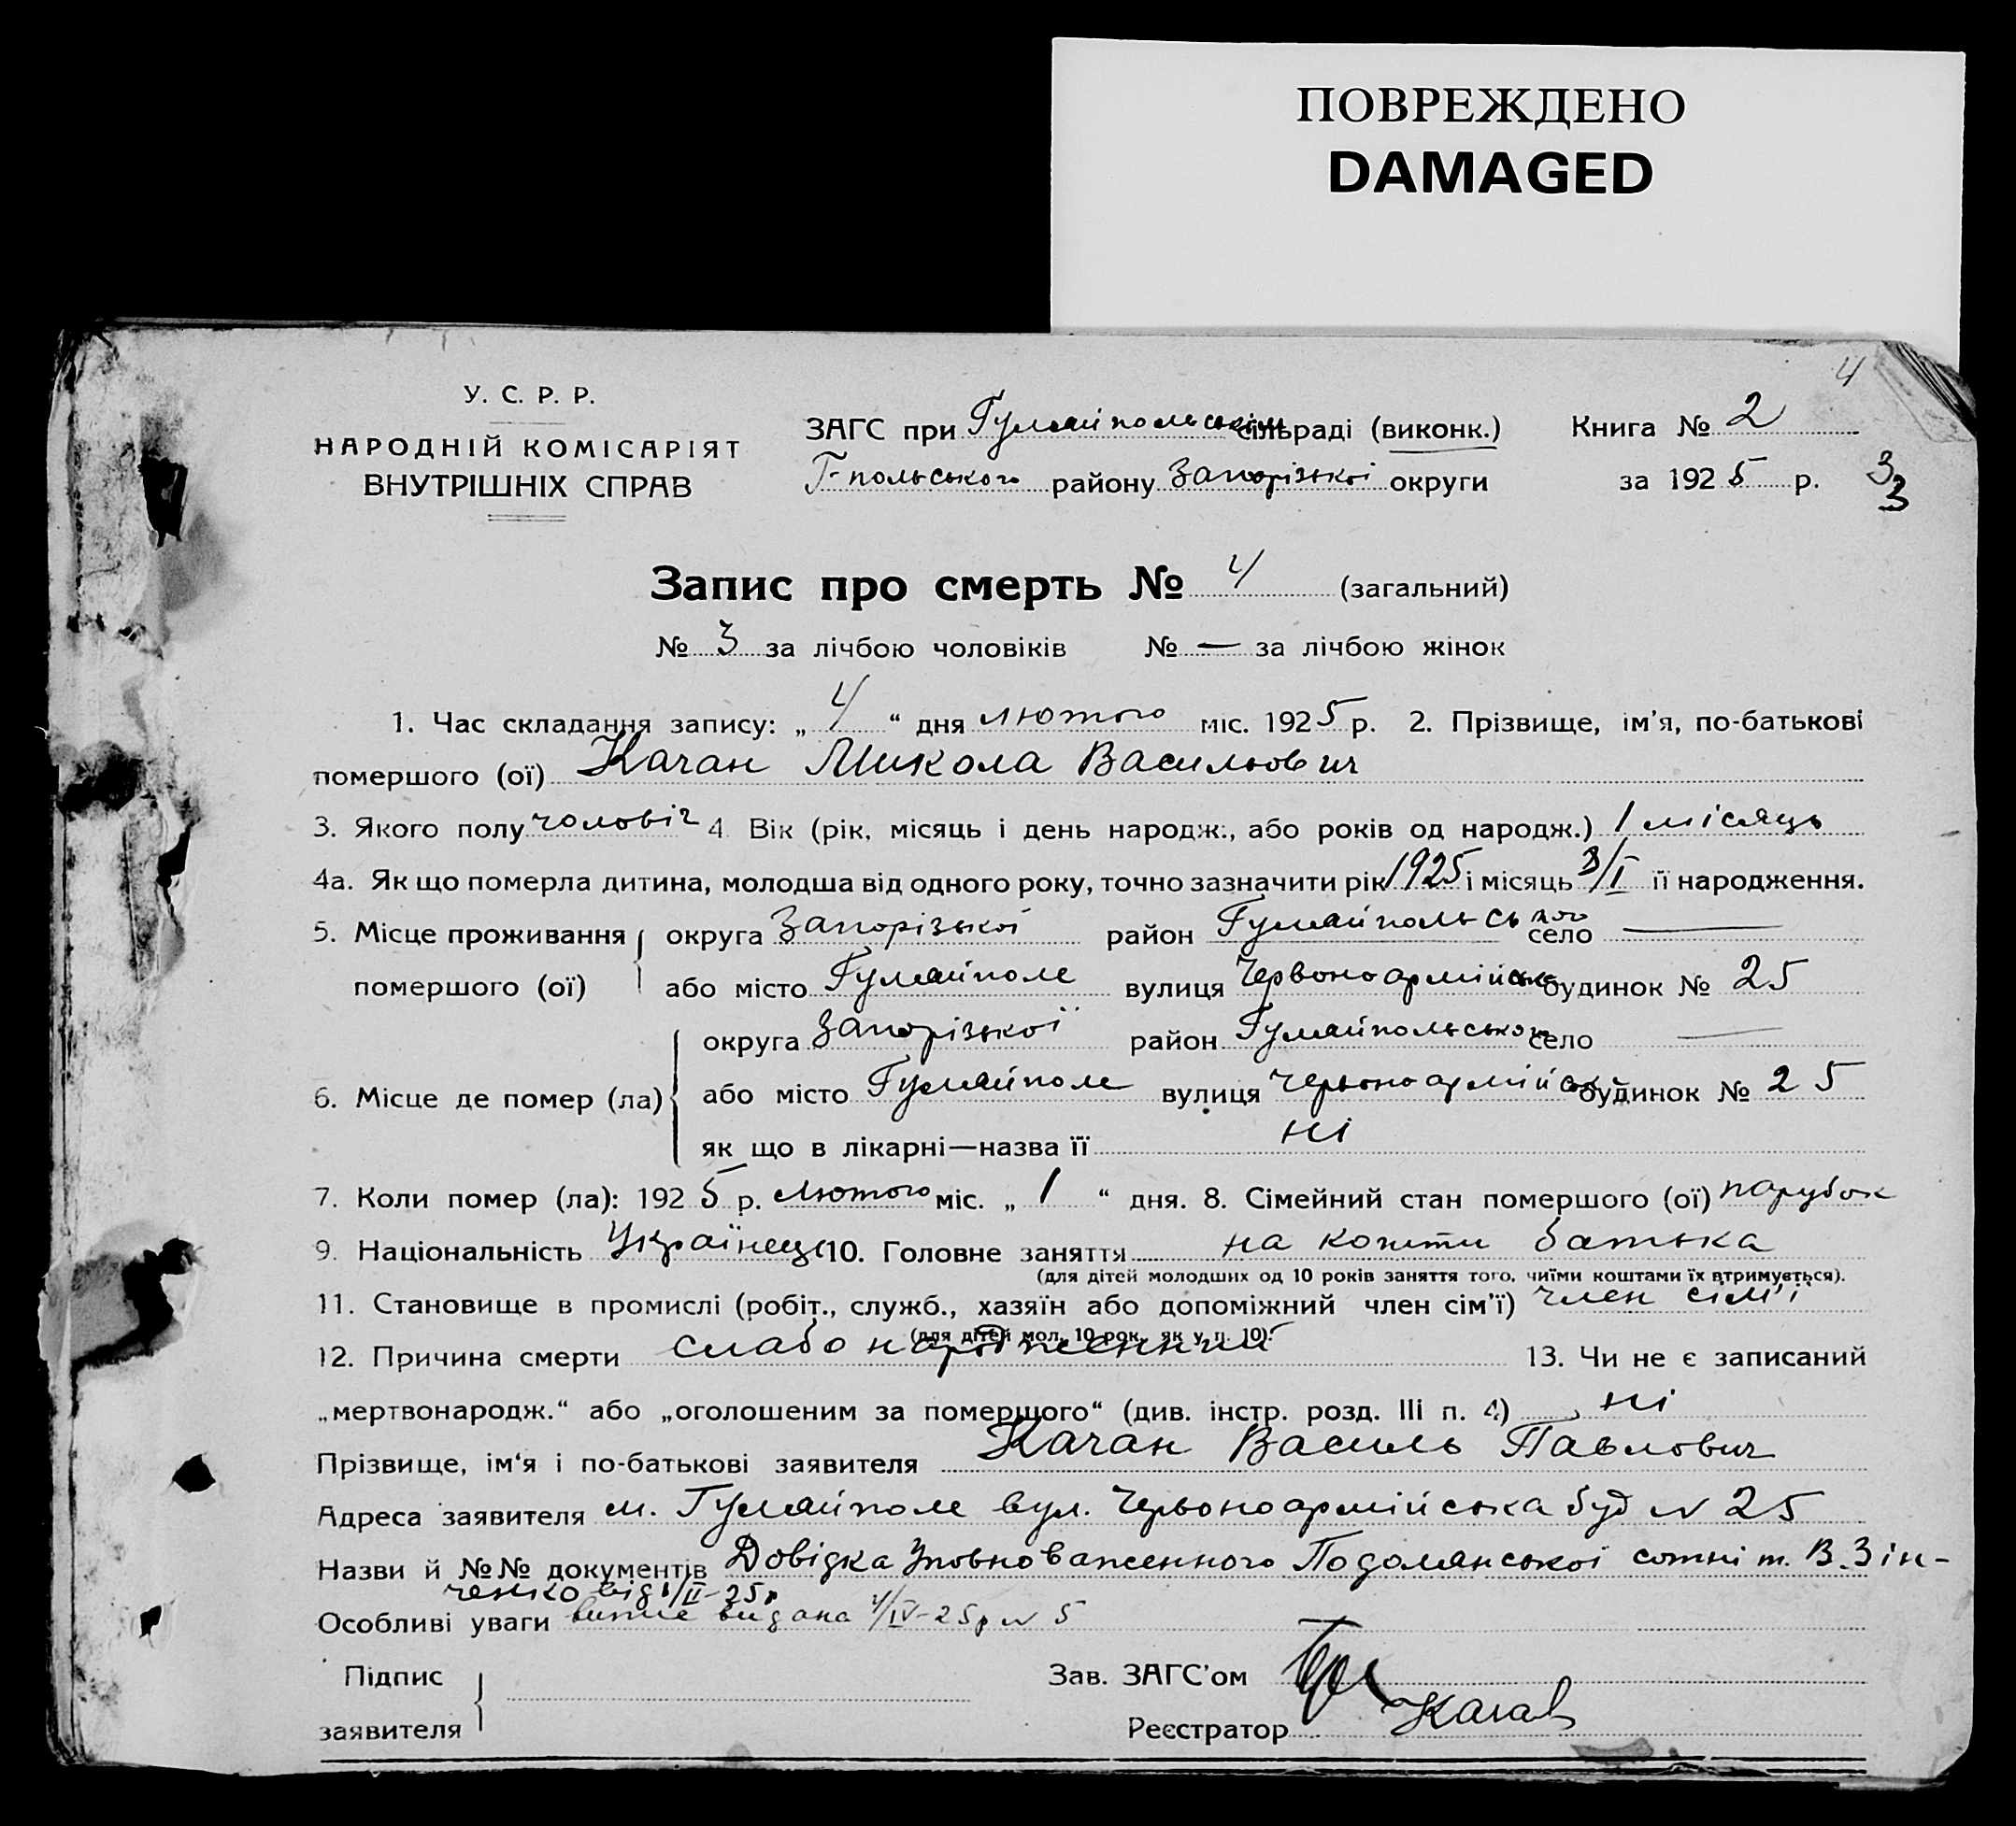 ПОВРЕЖДЕНО
DAMAGED
4
У. С. Р. Р.
НАРОДНІЙ КОМІСАРІЯТ
ВНУТРІШНІХ СПРАВ
ЗАГС при Гуляйпольським сільраді (виконк.) Книга № 2
Г-польського району Запорізької округи за 1925 р.
3
3
Запис про смерть № 4 (загальний)
№ 3 за лічбою чоловіків № — за лічбою жінок
1. Час складання запису: „ 4 “ дня лютого міс. 1925 р. 2. Прізвище, ім'я, по-батькові
помершого (ої) Качан Микола Васильович
3. Якого полу чоловіч 4 Вік (рік, місяць і день народж., або років од народж.) 1 місяць
4а. Як що померла дитина, молодша від одного року, точно зазначити рік 1925 і місяць 3/I її народження.
5. Місце проживання округа Запорізької район Гуляйпольського село —
помершого (ої) або місто Гуляйполе вулиця Червоноармійська будинок № 25
округа Запорізької район Гуляйпольського село —
6. Місце де помер (ла) або місто Гуляйполе вулиця Червоноармійськ будинок № 25
як що в лікарні—назва її ні
7. Коли помер (ла): 1925 р. лютого міс. „ 1 “ дня. 8. Сімейний стан помершого (ої) парубок
9. Національність Українець 10. Головне заняття на кошти батька
(для дітей молодших од 10 років заняття того, чиїми коштами їх втримується).
11. Становище в промислі (робіт., служб., хазяїн або допоміжний член сім'ї) член сім'ї
(для дітей мол. 10 рок. як у п. 10).
12. Причина смерти слабо народженний 13. Чи не є записаний
„мертвонародж.“ або „оголошеним за померщого“ (див. інстр. розд. III п. 4) ні
Прізвище, ім'я і по-батькові заявителя Качан Василь Павлович
Адреса заявителя м. Гуляйполе вул. Червоноармійська буд N 25
Назви й №№ документів Довідка Уповноваженного Подолянської сотні т. В. Зін-
ченко від 1/II-25р
Особливі уваги видана 4/IV-25р N 5
Підпис
заявителя
Зав. ЗАГС'ом
Реєстратор